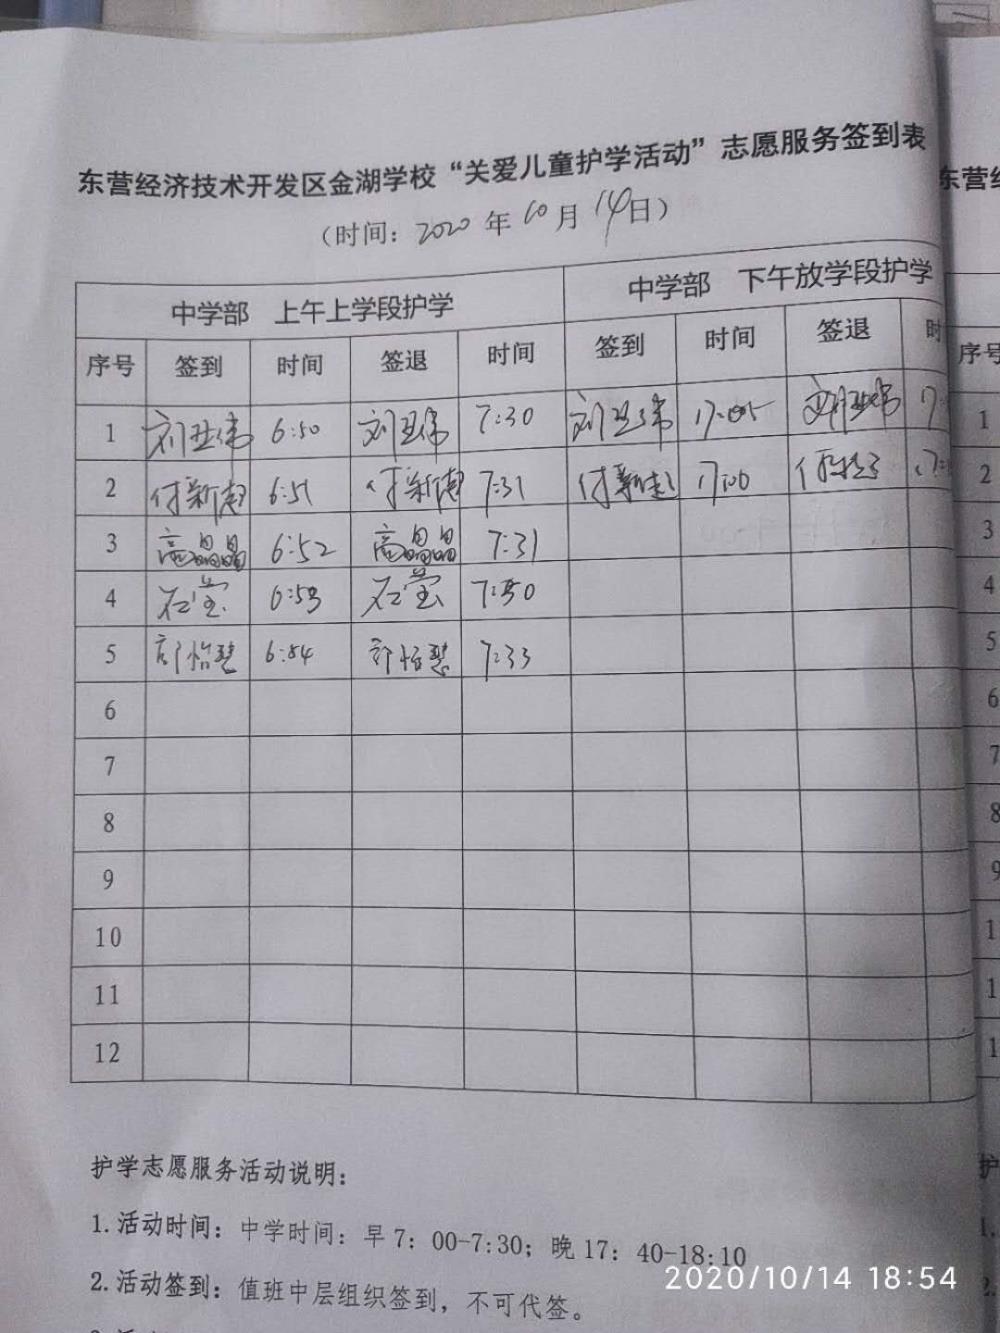 东营经济技术开发区金湖学校“关爱儿童护学活动”志愿服务签到表
（时间：2020年10月14日）
中学部 上午上学段护学 中学部 下午放学段护学
序号 签到 时间 签退 时间 签到 时间 签退 时
1 6:50 7:30 17:05 17:
2 付新超 6:51 付新超 7:31 付新超 17:06 17:
3 高晶晶 6:52 高晶晶 7:31
4 石莹 6:53 石莹 7:30
5 6:54 7:33
6
7
8
9
10
11
12
护学志愿服务活动说明：
1.活动时间：中学时间：早7：00-7:30；晚17：40-18:10
2.活动签到：值班中层组织签到，不可代签。
2020/10/14 18:54
东营
序号
1
2
3
4
5
6
7
8
9
护
1.
2.